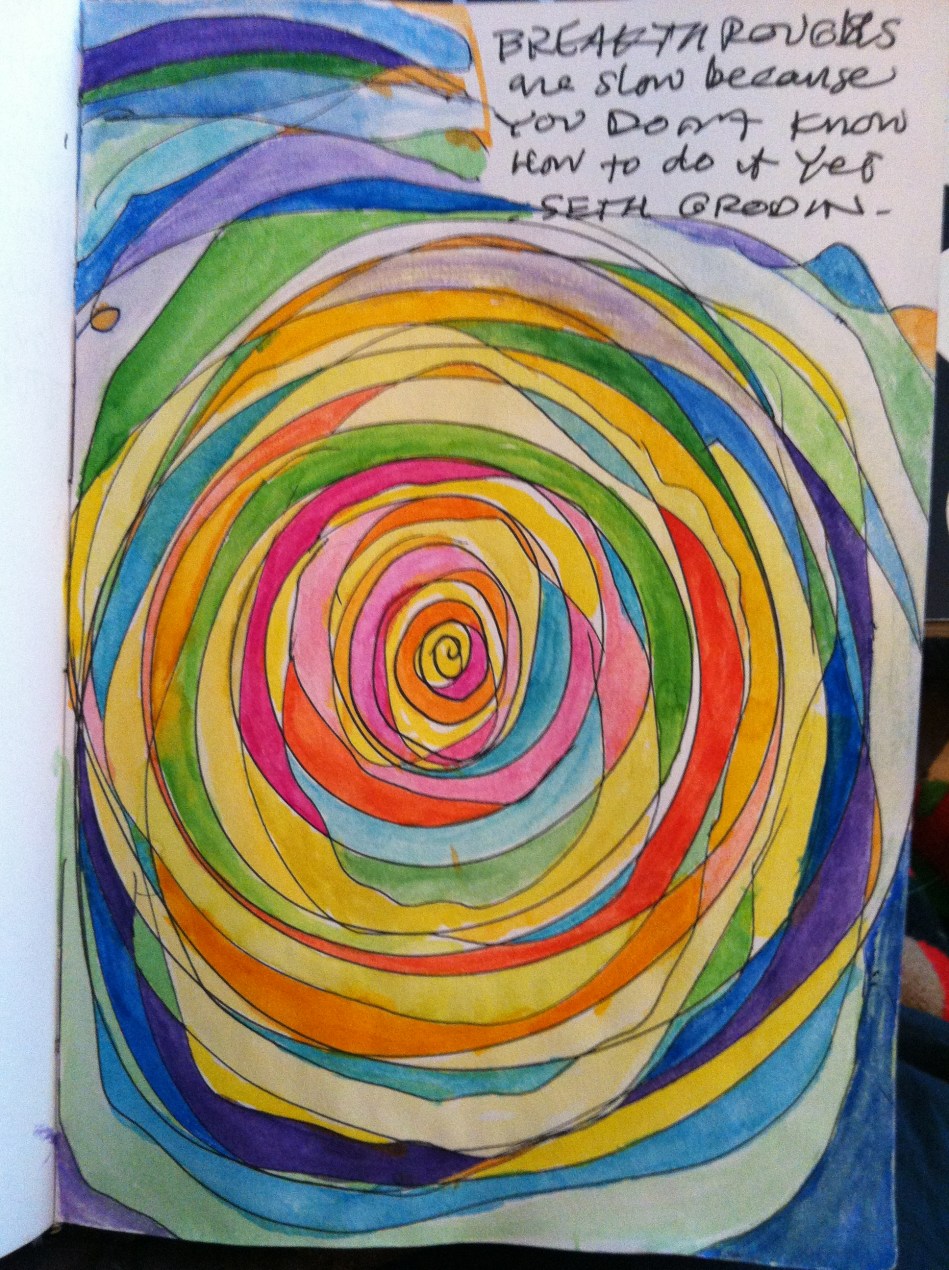 BREAKTHROUGHS
are slow because
YOU DON'T KNOW
HOW to do it YET
- SETH GRODIN -